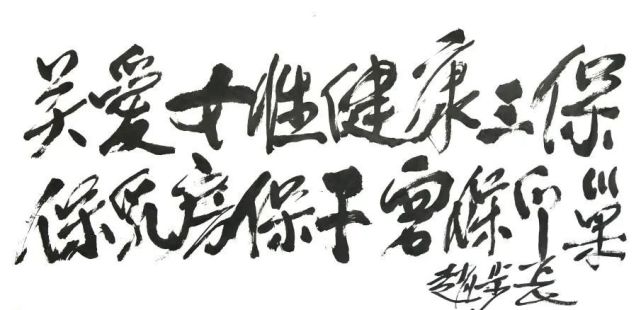 关爱女性健康三保
保乳房保子宫保卵巢
赵步长